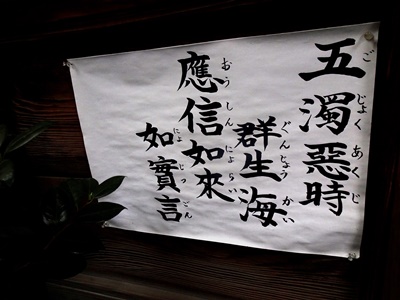 五濁惡時
ごじょくあくじ
群生海
ぐんじょうかい
應信如來
おうしんにょらい
如實言
にょじつごん